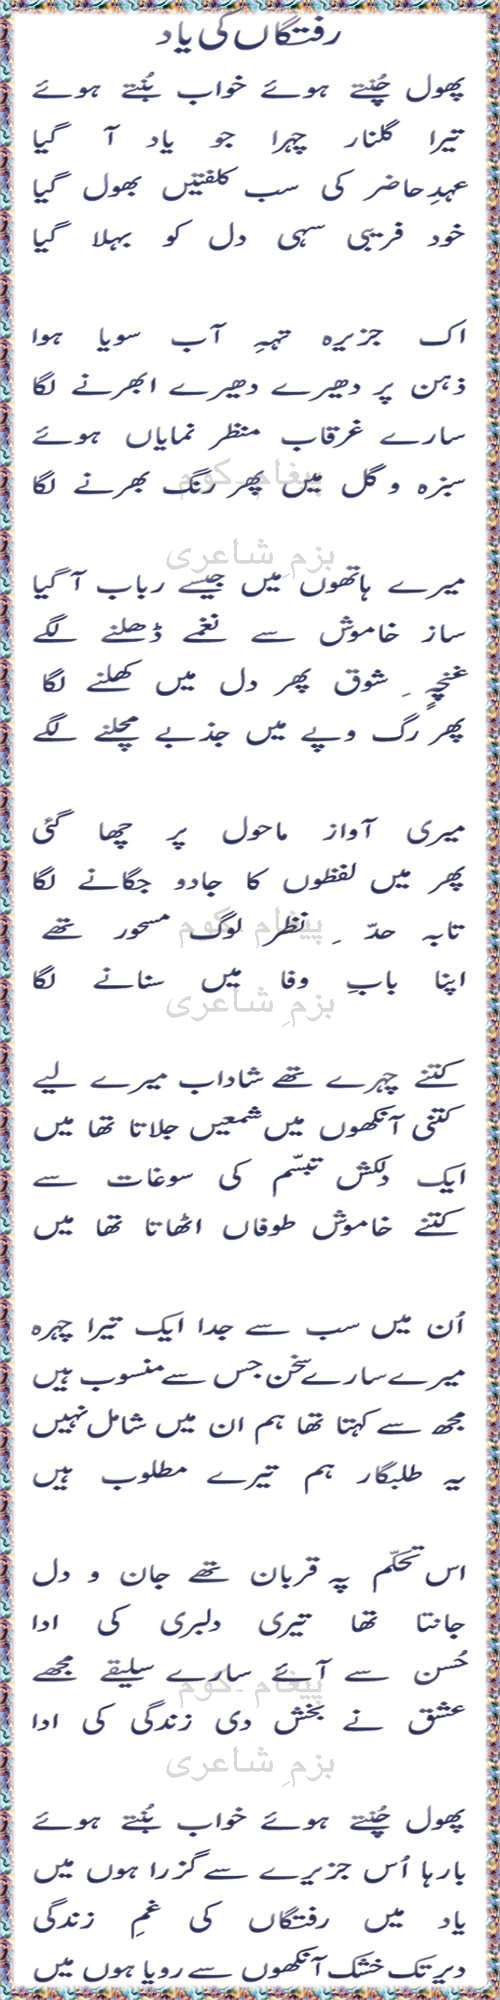 رفتگاں کی یاد
پھول چُنتے ہوئے خواب بُنتے ہوئے
تیرا گلنار چہرا جو یاد آ گیا
عہدِ حاضر کی سب کلفتیں بھول گیا
خود فریبی سہی دل کو بہلا گیا
اک جزیرہ تہہِ آب سویا ہوا
ذہن پر دھیرے دھیرے ابھرنے لگا
سارے غرقاب منظر نمایاں ہوئے
سبزہ و گل میں پھر رنگ بھرنے لگا
پیغام۔کوم
بزمِ شاعری
میرے ہاتھوں میں جیسے رباب آ گیا
ساز خاموش سے نغمے ڈھلنے لگے
غنچہِ ۔ شوق پھر دل میں کھلنے لگا
پھر رگ و پے میں جذبے مچلنے لگے
میری آواز ماحول پر چھا گئی
پھر میں لفظوں کا جادو جگانے لگا
تابہ حدّ ۔ نظر لوگ مسحور تھے
پیغام۔کوم
اپنا بابِ وفا میں سنانے لگا
بزمِ شاعری
کتنے چہرے تھے شاداب میرے لیے
کتنی آنکھوں میں شمعیں جلاتا تھا میں
ایک دلکش تبسّم کی سوغات سے
کتنے خاموش طوفاں اٹھاتا تھا میں
اُن میں سب سے جدا ایک تیرا چہرہ
میرے سارے سخن جس سے منسوب ہیں
مجھ سے کہتا تھا ہم ان میں شامل نہیں
یہ طلبگار ہم تیرے مطلوب ہیں
اس تحکّم پہ قربان تھے جان و دل
جانتا تھا تیری دلبری کی ادا
حُسن سے آئے سارے سلیقے مجھے
پیغام۔کوم
عشق نے بخش دی زندگی کی ادا
بزمِ شاعری
پھول چُنتے ہوئے خواب بُنتے ہوئے
بارہا اُس جزیرے سے گزرا ہوں میں
یاد میں رفتگاں کی غمِ زندگی
دیر تک خشک آنکھوں سے رویا ہوں میں